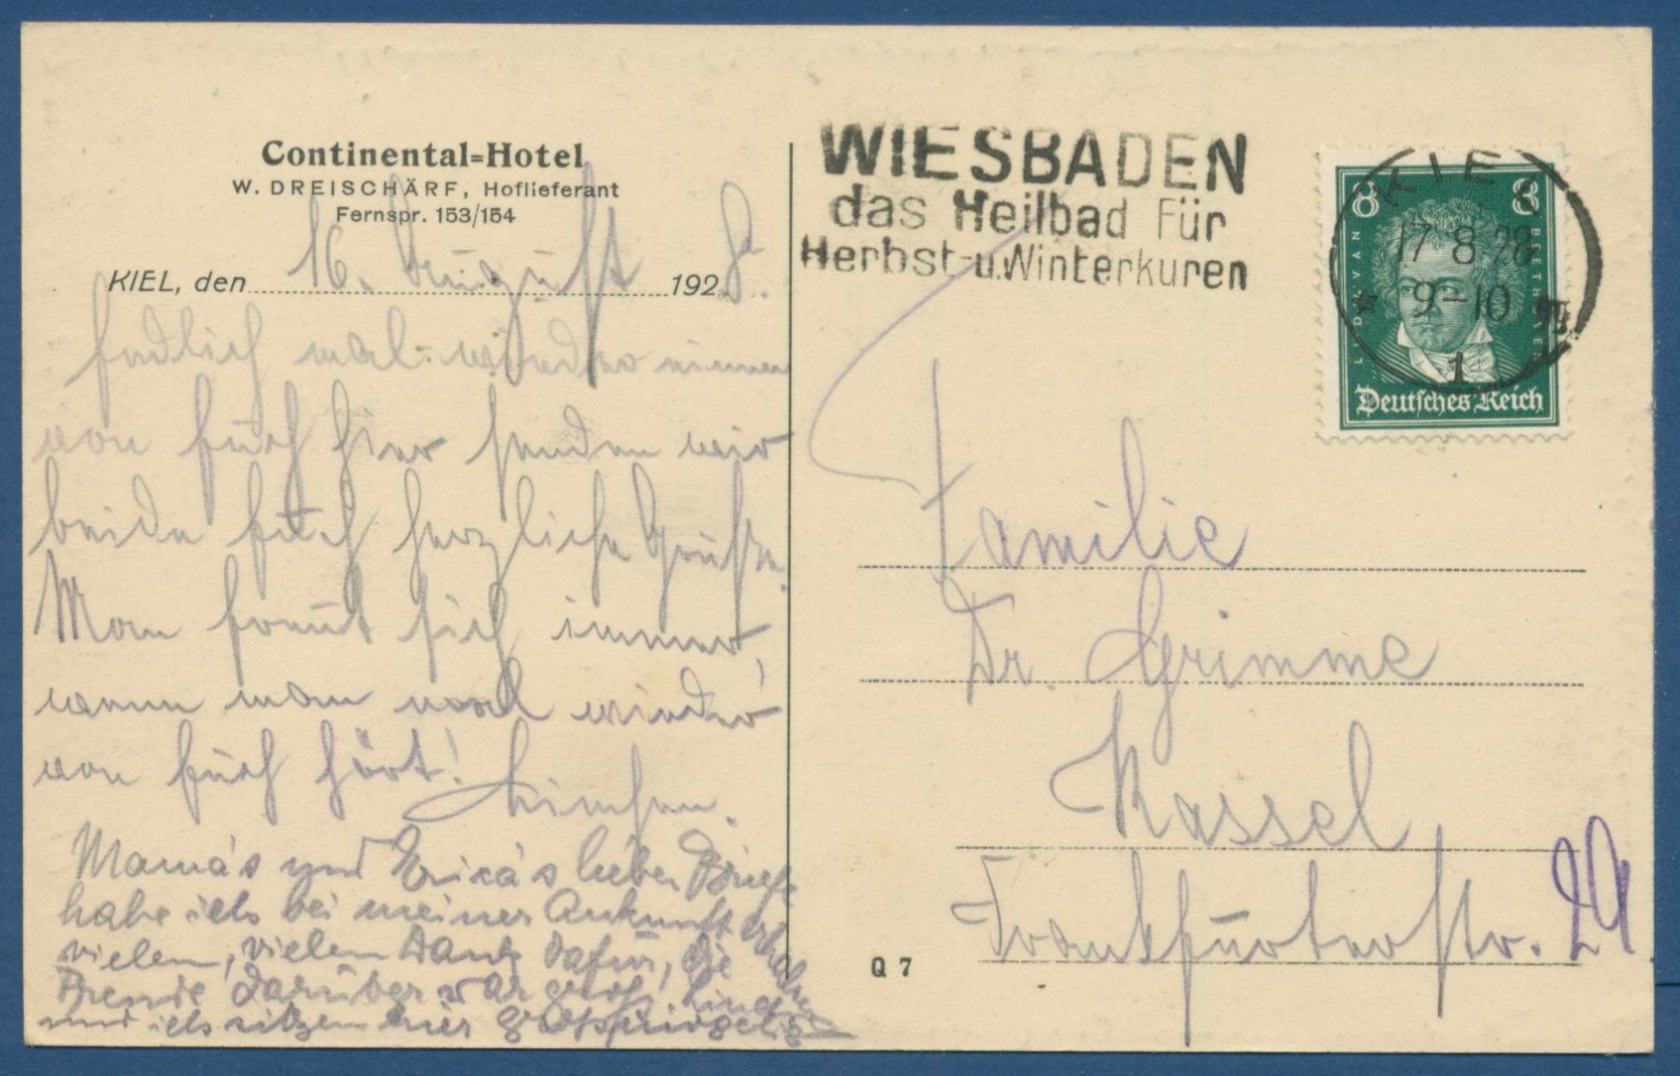 Continental-Hotel
W. DREISCHÄRF, Hoflieferant
Fernspr. 153/154
KIEL, den 16. August 1928.
Endlich mal wieder einen
von Euch hier senden wir
beide Euch herzliche Grüße.
Man freut sich immer,
wenn man noch wieder
von Euch hört!
Mama's und Erica's lieben Brief
habe ich bei meiner Ankunft erhalten
vielen, vielen Dank dafür, die
Freude darüber war groß.
und ich sitzen hier
WIESBADEN
das Heilbad für
Herbst-u.Winterkuren
KIEL
17 8 28
9-10
1
8 8
LUDW. VAN BEETHOVEN
Deutsches Reich
Familie
Dr. Grimme
Kassel
Frankfurterstr. 29
Q 7